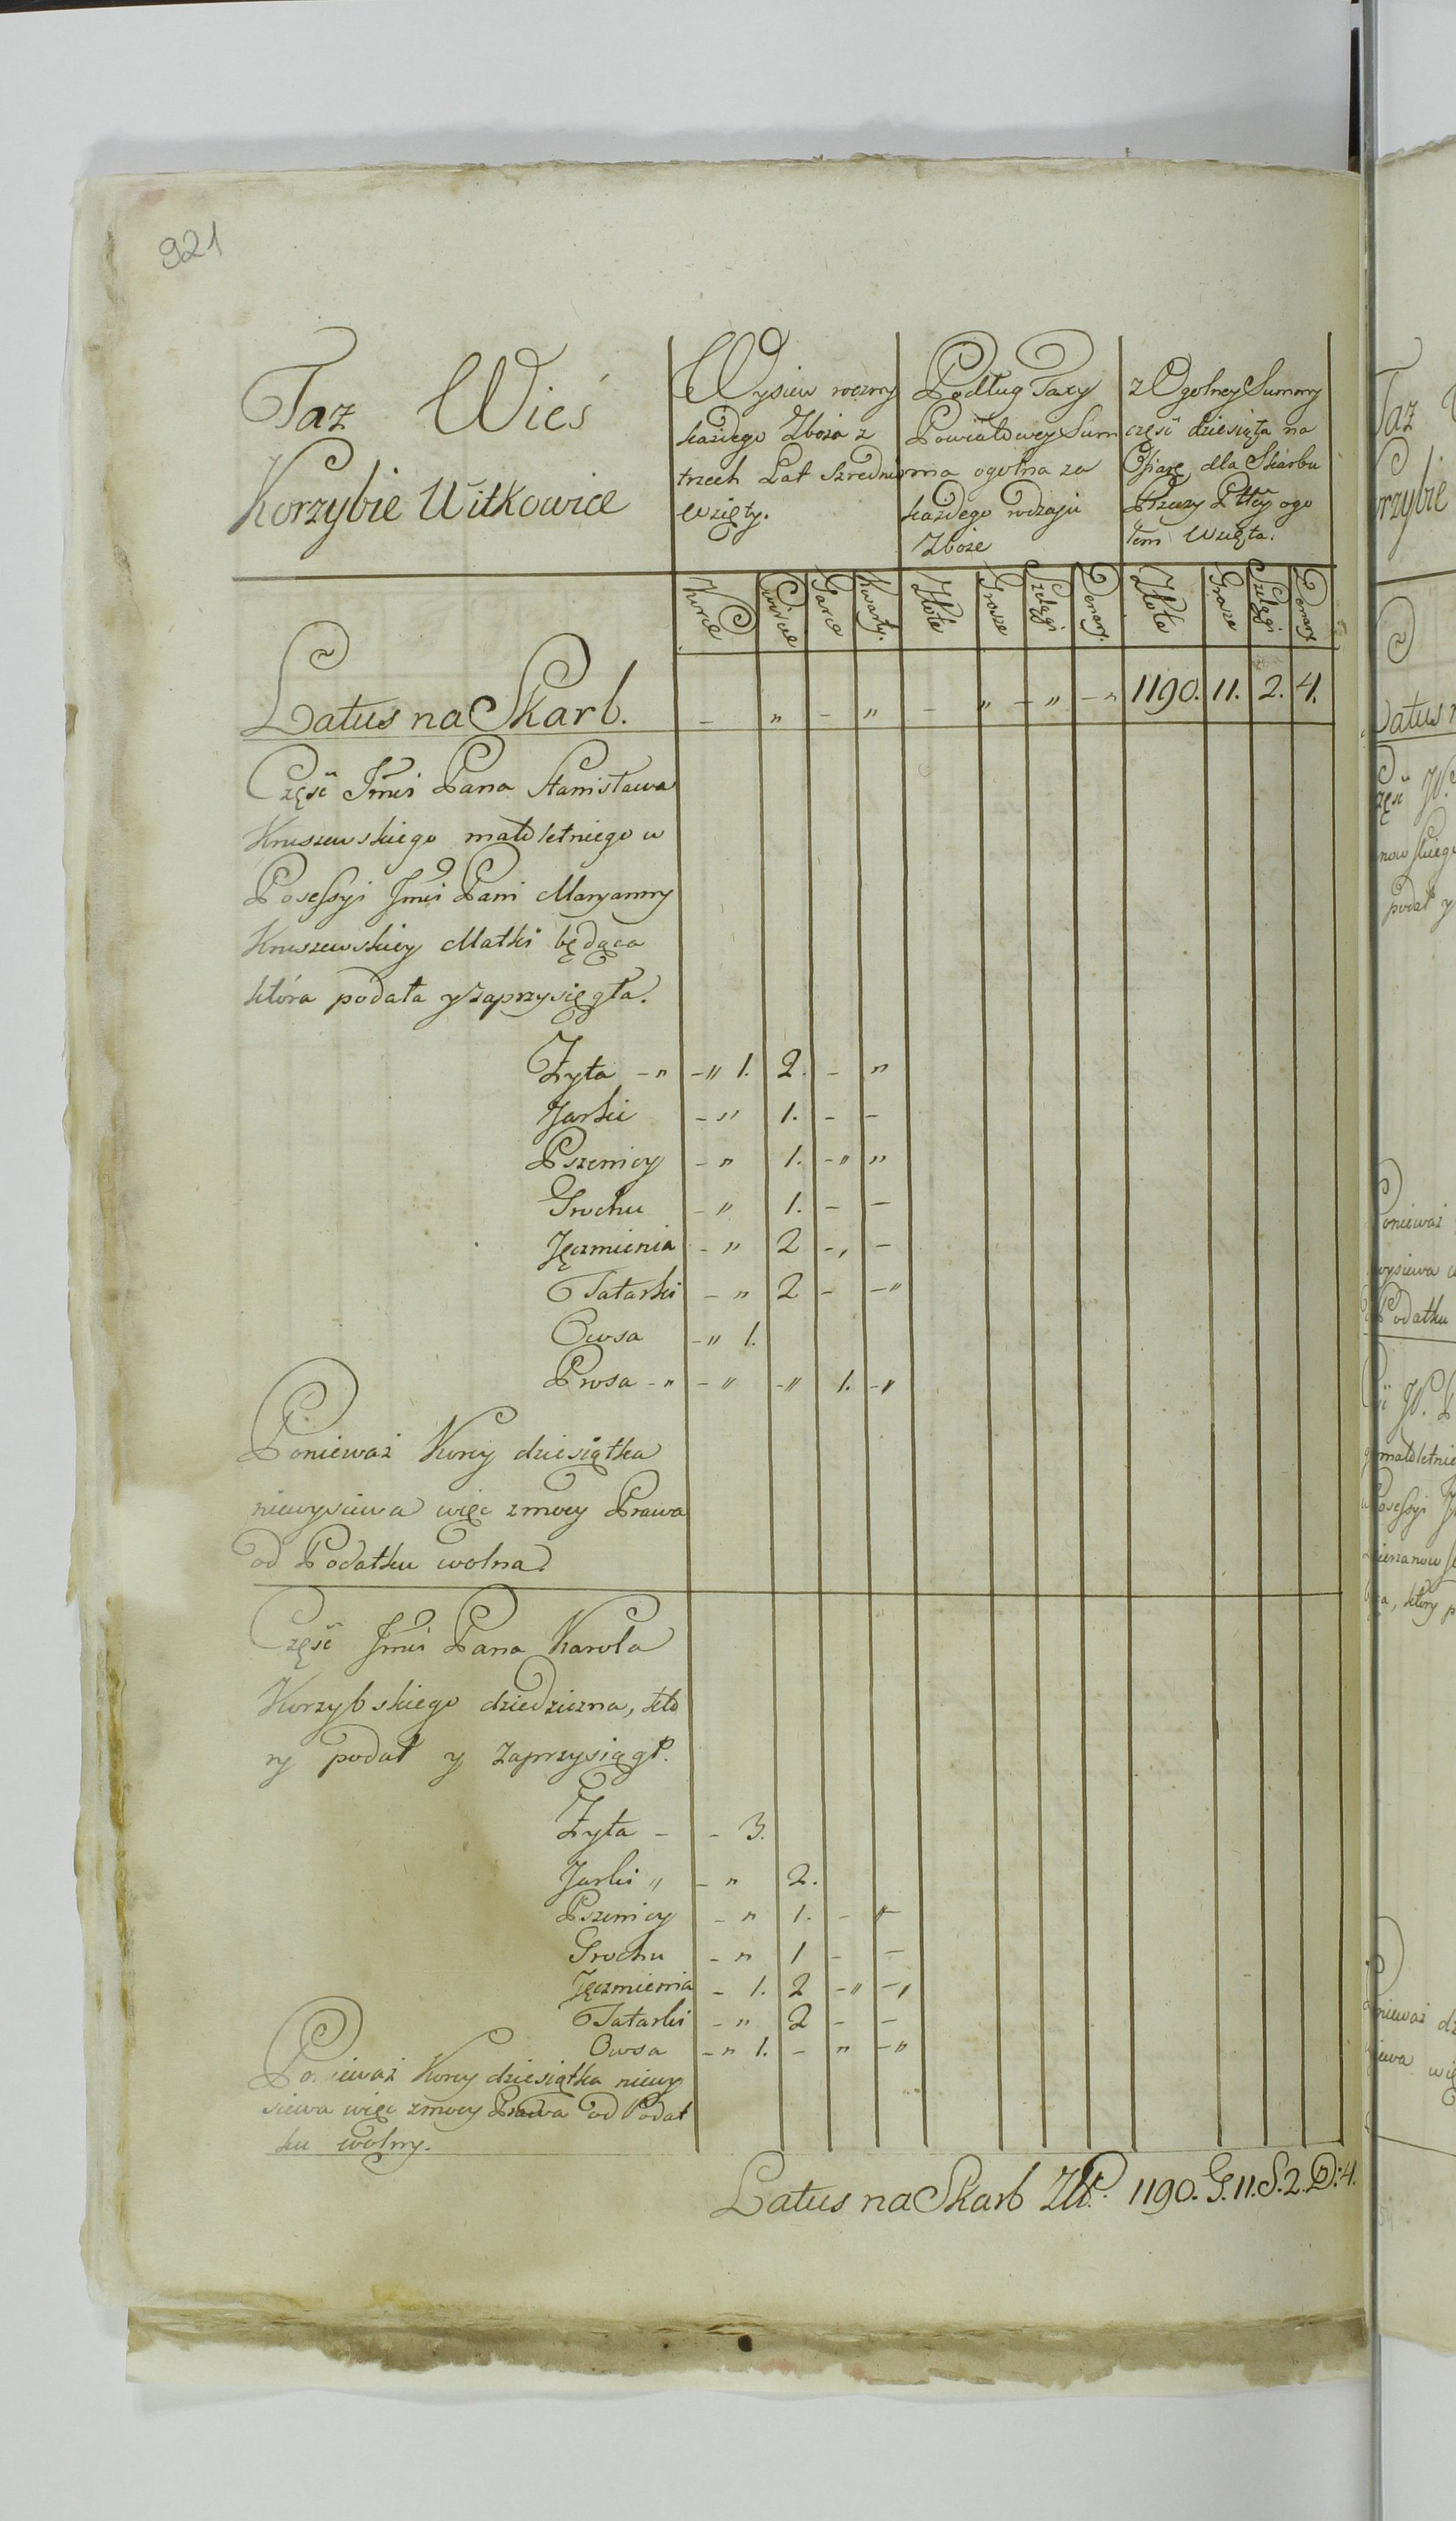 921
Taz Wieś
Korzybie Witkowice
Wysiew roczny
każdego Zboża z
trzech Lat Szrednio
wzięty.
Podług Taxy
Powiatowey Sum
ma ogolna za
każdego rodzaju
Zboże
z Ogolney Summy
część dziesięta na
Ofiarę dla Skarbu
Rzeczy Pltey ogo
łem Wzięta.
Korce Cwirce Garce Kwarty. Złote Grosze Szelągi Denary. Złote Grosze Szelągi Denary
Latus na Skarb. - " - " - " - " - " 1190. 11. 2. 4.
Część Jmci Pana Stanisława
Kruszewskiego małoletniego w
Posessyi Jmci Pani Maryanny
Kruszewskiey Matki będąca
która podała y zaprzysięgła.
Żyta - " - " 1. 2. - "
Jarki - " 1. - -
Pszenicy - " 1. - " "
Grochu - " 1. - -
Jęczmienia - " 2 - , -
Tatarki - " 2 - - "
Owsa - " 1.
Prosa - " - " - " 1. - "
Ponieważ Korcy dziesiątka
niewysiewa więc zmocy Prawa
od Podatku wolna
Część Jmci Pana Karola
Korzybskiego dziedziczna, któ
ry podał y Zaprzysiągł.
Żyta - - 3.
Jarki " - " 2.
Pszenicy - " 1. - "
Grochu - " 1 - -
Jęczmienia - 1. 2 - " - ,
Tatarki - " 2 - -
Owsa - " 1. - " - "
Ponieważ Korcy dziesiątka niewy
siewa więc zmocy Prawa od Podat
ku wolny.
Latus na Skarb Złt. 1190. G. 11. S. 2. D: 4.